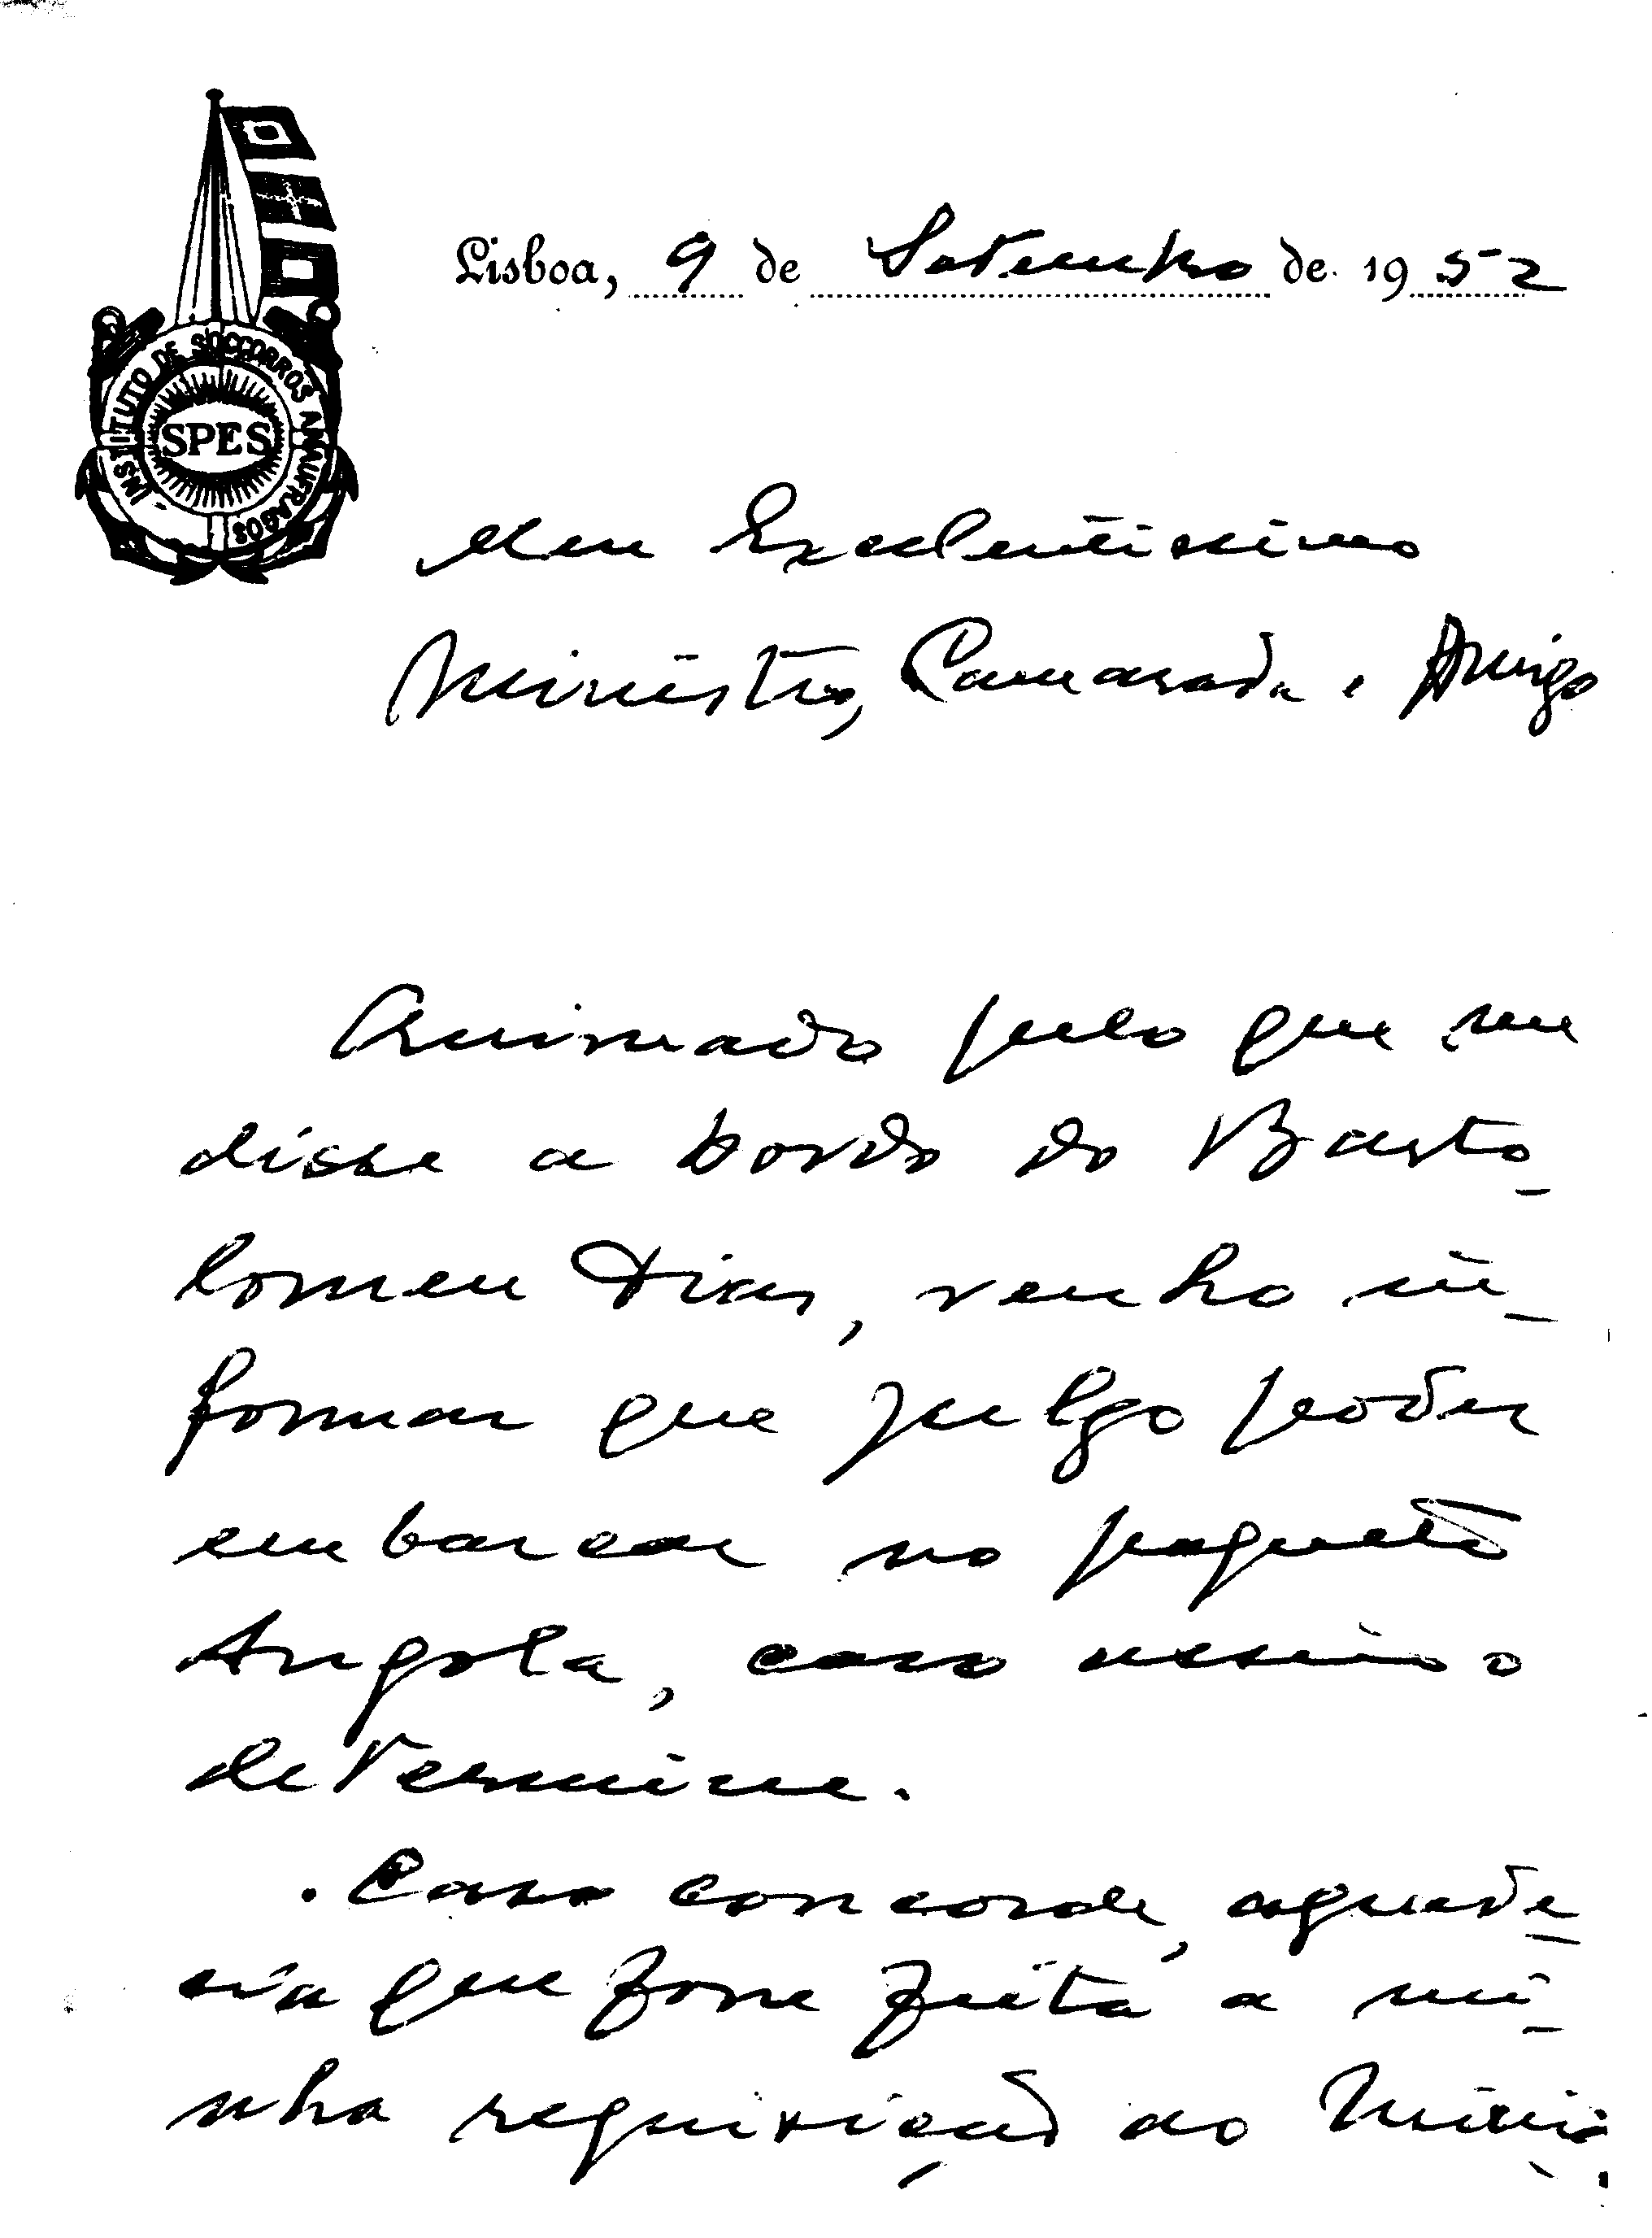 INSTITUTO DE SOCCORROS A NAUFRAGOS
SPES
Lisboa, 9 de Setembro de 1952
Meu Excelentissimo
Ministro, Camarada e Amigo
Animado pelo que me
disse a bordo do Barto-
lomeu Dias, venho in-
formar que julgo poder
embarcar no paquete
Angola, caso assim o
determine.
Caso concorde, agrade-
cia que fosse feita a mi-
nha requisição ao Minis-